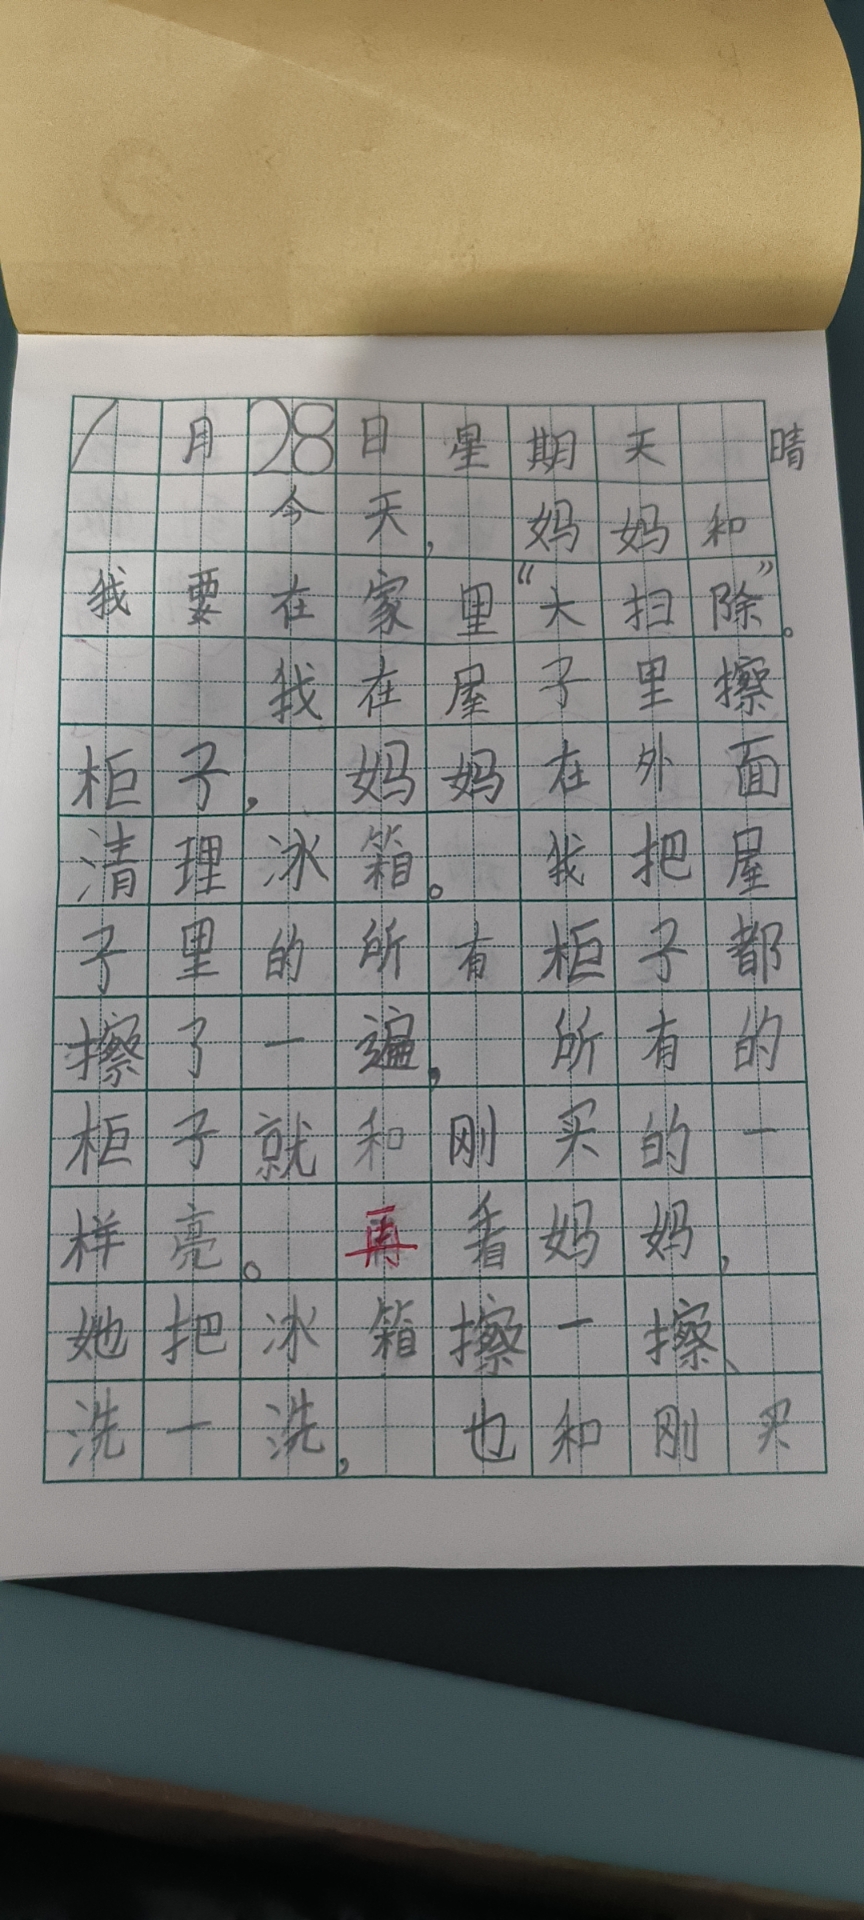 1月28日星期天 晴
今天，妈妈和
我要在家里“大扫除”。
我在屋子里擦
柜子，妈妈在外面
清理冰箱。我把屋
子里的所有柜子都
擦了一遍，所有的
柜子就和刚买的一
样亮。再看妈妈，
她把冰箱擦一擦、
洗一洗，也和刚买